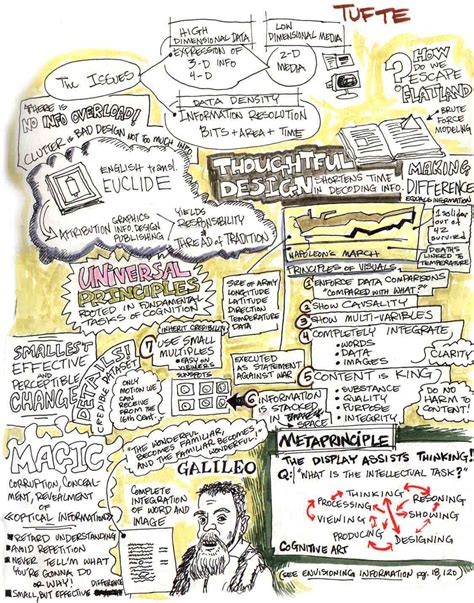 TUFTE
The Issues
HIGH
DIMENSIONAL DATA
• EXPRESSION OF
3-D INFO
4-D
LOW
DIMENSIONAL MEDIA
2-D
MEDIA
DATA DENSITY
INFORMATION RESOLUTION
BITS + AREA + TIME
? HOW
DO WE
ESCAPE
FLATLAND
BRUTE
FORCE
MODELING
"THERE IS
NO INFO OVERLOAD!
CLUTTER & BAD DESIGN NOT TOO MUCH INFO
ENGLISH transl.
EUCLIDE
GRAPHICS
ATTRIBUTION INFO. DESIGN
PUBLISHING
YIELDS
RESPONSIBILITY
THREAD OF TRADITION
THOUGHTFUL
DESIGN SHORTENS TIME
IN DECODING INFO.
MAKING
DIFFERENCE
EQUALS INFORMATION
1 soldier
out of
42
survived
DEATHS
LINKED TO
TEMPERATURE
NAPOLEON'S MARCH
PRINCIPLES OF VISUALS
① ENFORCE DATA COMPARISONS
"COMPARED WITH WHAT?"
② SHOW CAUSALITY
③ SHOW MULTI-VARIBLES
④ COMPLETELY INTEGRATE
• WORDS
• DATA
• IMAGES
CLARITY
⑤ CONTENT IS KING
• SUBSTANCE
• QUALITY
• PURPOSE
• INTEGRITY
DO NO
HARM TO
CONTENT!
⑥ INFORMATION
IS STACKED
IN
SPACE
UNIVERSAL
PRINCIPLES
ROOTED IN FUNDAMENTAL
TASKS OF COGNITION
SIZE OF ARMY
LONGITUDE
LATITUDE
DIRECTION
TEMPERATURE
DATA
EXECUTED
AS STATEMENT
AGAINST WAR
⑦ USE SMALL
MULTIPLES
• EASY ON
VIEWERS
SUNSPOTS
ONLY
MOTION WE
CAN
RECEIVE
FROM THE
16th Cent.
SMALLEST
EFFECTIVE
AND
PERCEPTIBLE
CHANGE
DETAILS!
CREDIBLE DATASET
"THE WONDERFUL
BECOMES FAMILIAR,
AND THE FAMILIAR BECOMES
WONDERFUL"
GALILEO
MAGIC
CORRUPTION, CONCEAL
MENT, REVEALMENT
OF
OPTICAL INFORMATION
■ RETARD UNDERSTANDING
■ AVOID REPETITION
■ NEVER TELL'M WHAT
YOU'RE GONNA DO
OR WHY!
■ SMALL, BUT EFFECTIVE
DIFFERENCES
COMPLETE
INTEGRATION
OF WORD AND
IMAGE
METAPRINCIPLE
THE DISPLAY ASSISTS THINKING!
Q: "WHAT IS THE INTELLECTUAL TASK?"
THINKING
PROCESSING
RESONING
VIEWING
SHOWING
PRODUCING
DESIGNING
COGNITIVE ART
(SEE ENVISIONING INFORMATION pg. 18, 120)